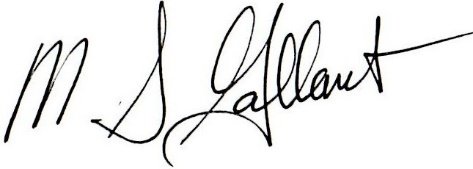 M S Gallant